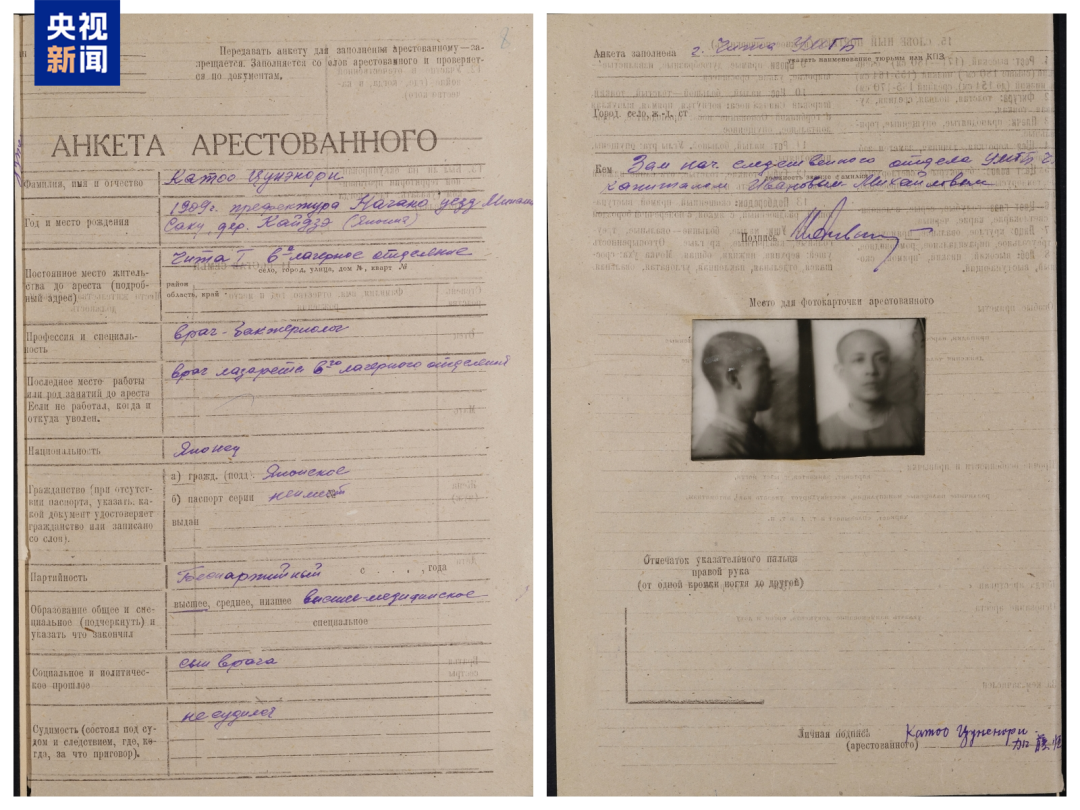 央视
新闻
Передавать анкету для заполнения арестованному — за-
прещается. Заполняется со слов арестованного и проверяет-
ся по документам.
АНКЕТА АРЕСТОВАННОГО
Фамилия, имя и отчество
Катоо Цунэнори
Год и место рождения
1909г. префектура Нагано уезд Минами
Саку дер. Кайдзэ (Япония)
Постоянное место житель-
ства до ареста (подроб-
ный адрес)
Чита I 6ое лагерное отделение
село, город, улица, дом №, кварт №
район
область, край
Профессия и специаль-
ность
врач-бактериолог
Последнее место работы
или род занятий до ареста
Если не работал, когда и
откуда уволен.
врач лазарета 6го лагерного отделения
Национальность
Японец
Гражданство (при отсутст-
вии паспорта, указать, ка-
кой документ удостоверяет
гражданство или записано
со слов).
а) гражд. (подд.) Японское
б) паспорт серия неимеет
выдан
Партийность
Беспартийный с . . . . , года
Образование общее и спе-
циальное (подчеркнуть) и
указать что закончил
высшее, среднее, низшее высшее-медицинское
специальное
Социальное и политичес-
кое прошлое
сын врача
Судимость (состоял под су-
дом и следствием, где, ко-
гда, за что приговор).
не судился
Анкета заполнена г. Чита
указать наименование тюрьмы или КПЗ
Город село, ж.-д. ст
Кем Зам нач. следственного отдела
капитаном Ивановым Михайловым
Подпись
Место для фотокарточки арестованного
Отпечаток указательного пальца
правой рука
(от одной кромки ногтя до другой)
Личная подпись
(арестованного)
Катоо Цунэнори